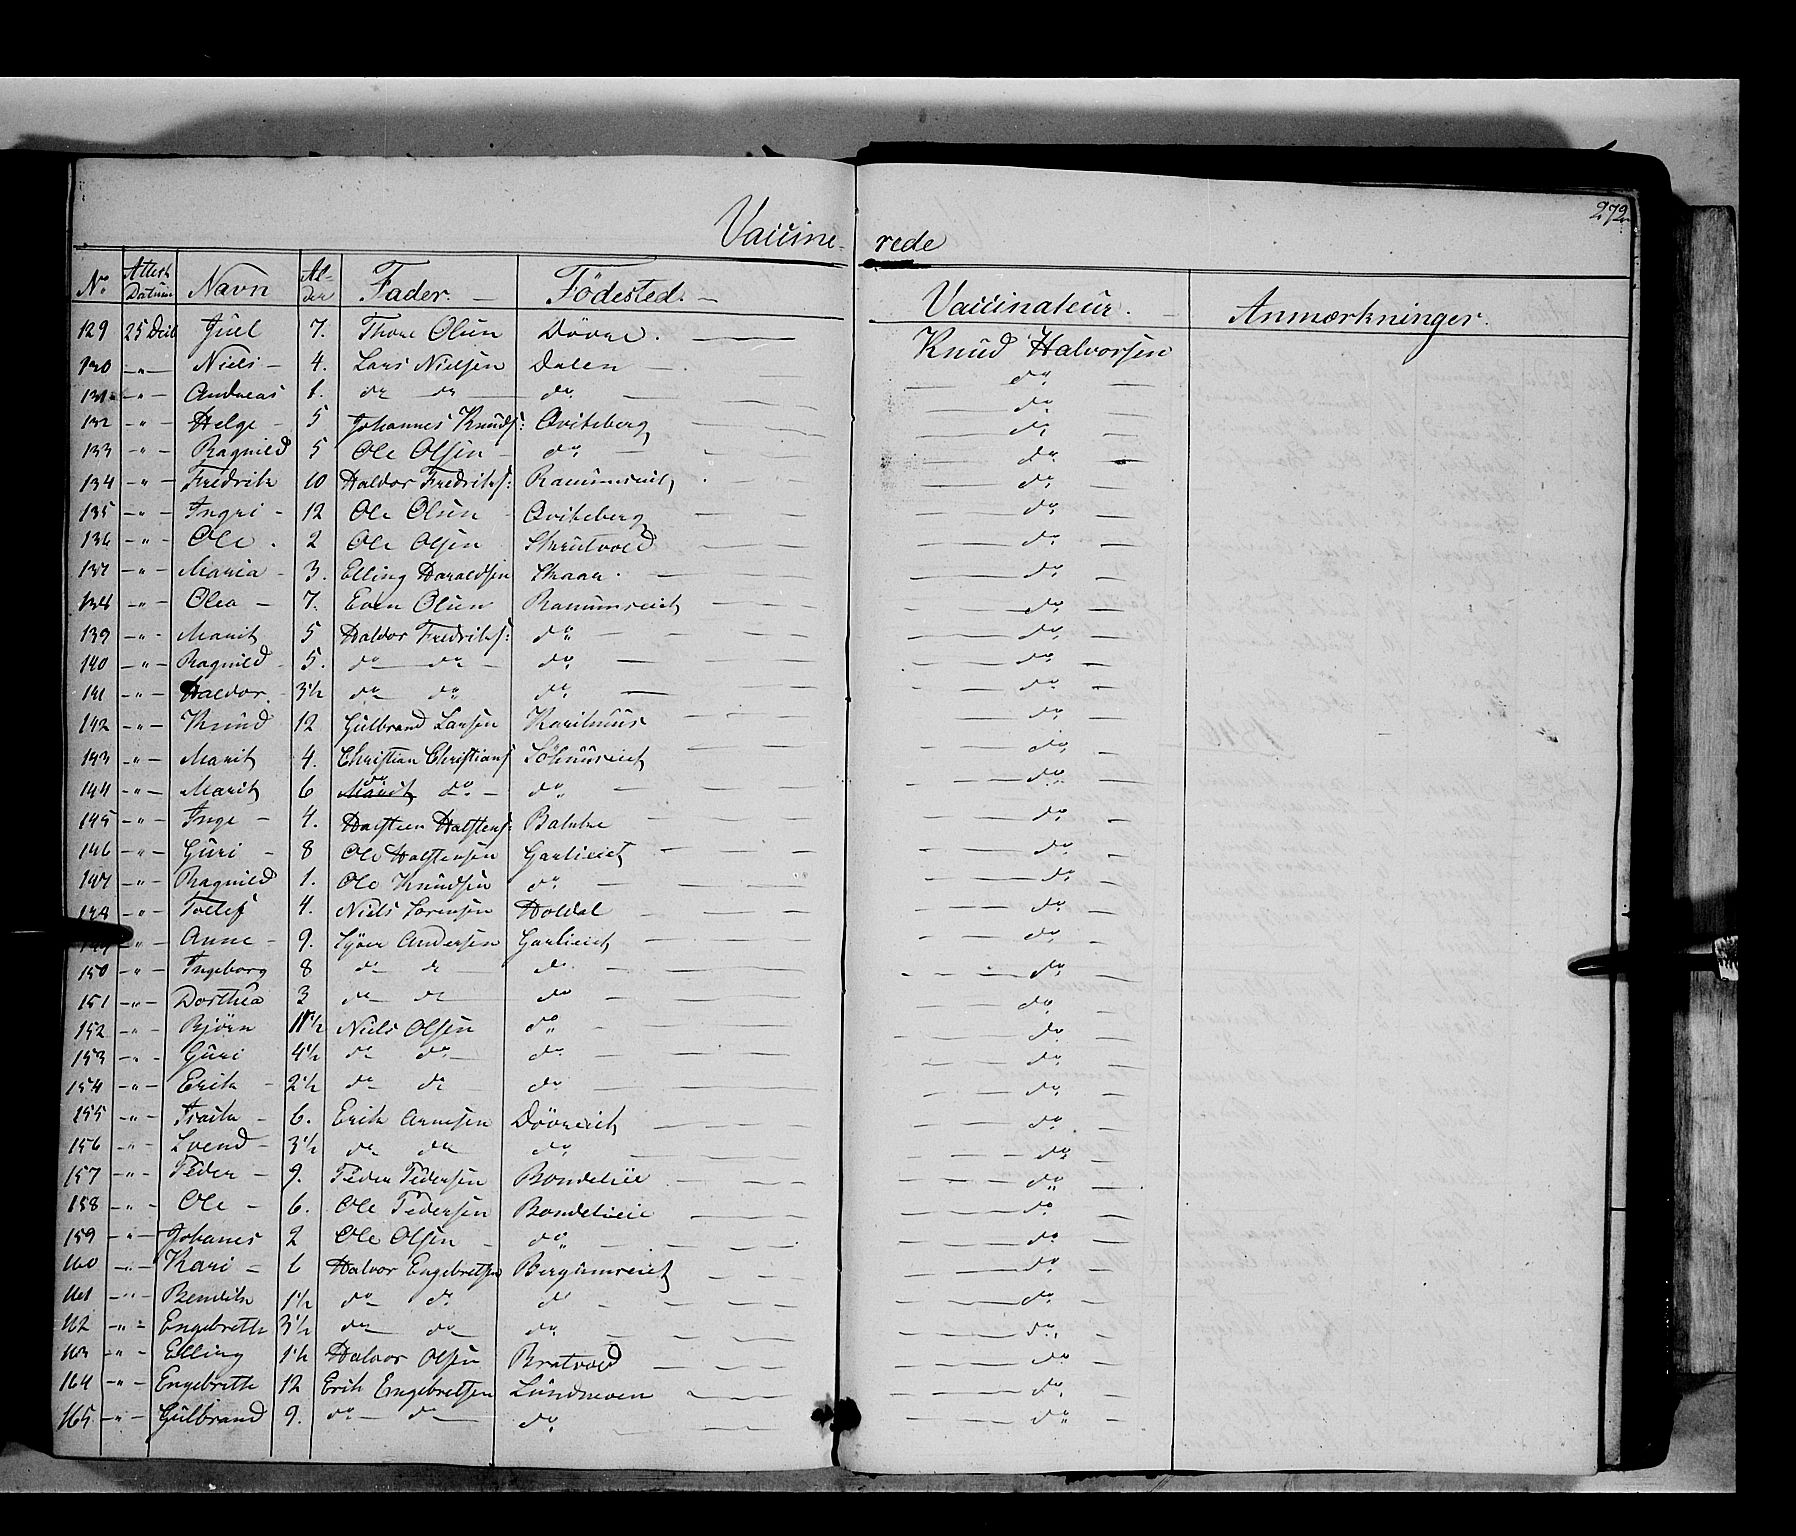 272
Vaccine- rede
No Attest Datum Navn Alder Fader. Födested. Vaccinateur. Anmærkninger.
129 25 Decb Juel 7. Thore Olsen Dövre. Knud Halvorsen
130 -"- Niels 4. Lars Nielsen Dalen do
131 -"- Andreas 1. do do do do
132 -"- Helge 5 Johannes Knuds: Qviteberg do
133 -"- Ragnild 5 Ole Olsen do do
134 -"- Fredrik 10 Haldor Fredriks: Ramunseiet do
135 -"- Ingri 12 Ole Olsen Qviteberg do
136 -"- Ole 2 Ole Olsen Skrutvold do
137 -"- Maria 3. Elling Haraldsen Skaar do
138 -"- Olea 7. Even Olsen Ramunseiet do
139 -"- Marit 5 Haldor Fredriks: do do
140 -"- Ragnild 5. do do do do
141 -"- Haldor 3½ do do do do
142 -"- Knud 12 Gulbrand Larsen Karihuus do
143 -"- Marit 4. Christian Christians do
144 -"- Marit 6 do do do do
145 -"- Inge 4. Halsteen Halstens: Bakke do
146 -"- Guri 8 Ole Halstensen Garlieiet do
147 -"- Ragnild 1. Ole Knudsen do do
148 -"- Tollef 4. Niels Sorensen Holdal do
149 -"- Anne 9. Syver Andersen Garlieiet do
150 -"- Ingeborg 8 do do do do
151 -"- Dorthea 3 do do do do
152 -"- Björn 11½ Niels Olsen do do
153 -"- Guri 4½ do do do do
154 -"- Erik 2½ do do do do
155 -"- Isack 6. Erik Arnesen Dövreiet do
156 -"- Svend 3½ do do do do
157 -"- Peder 9. Peder Pedersen Bondelien do
158 -"- Ole 6. Ole Pedersen Bondelieie do
159 -"- Johanes 2 Ole Olsen do do
160 -"- Kari 6 Halvor Engebretsen Bergumseiet do
161 -"- Bendik 1½ do do do do
162 -"- Engebreth 3½ do do do do
163 -"- Elling 1½ Halvor Olsen Bratvold do
164 -"- Engebreth 12 Erik Engebretsen Lundmoen do
165 -"- Gulbrand 9. do do do do